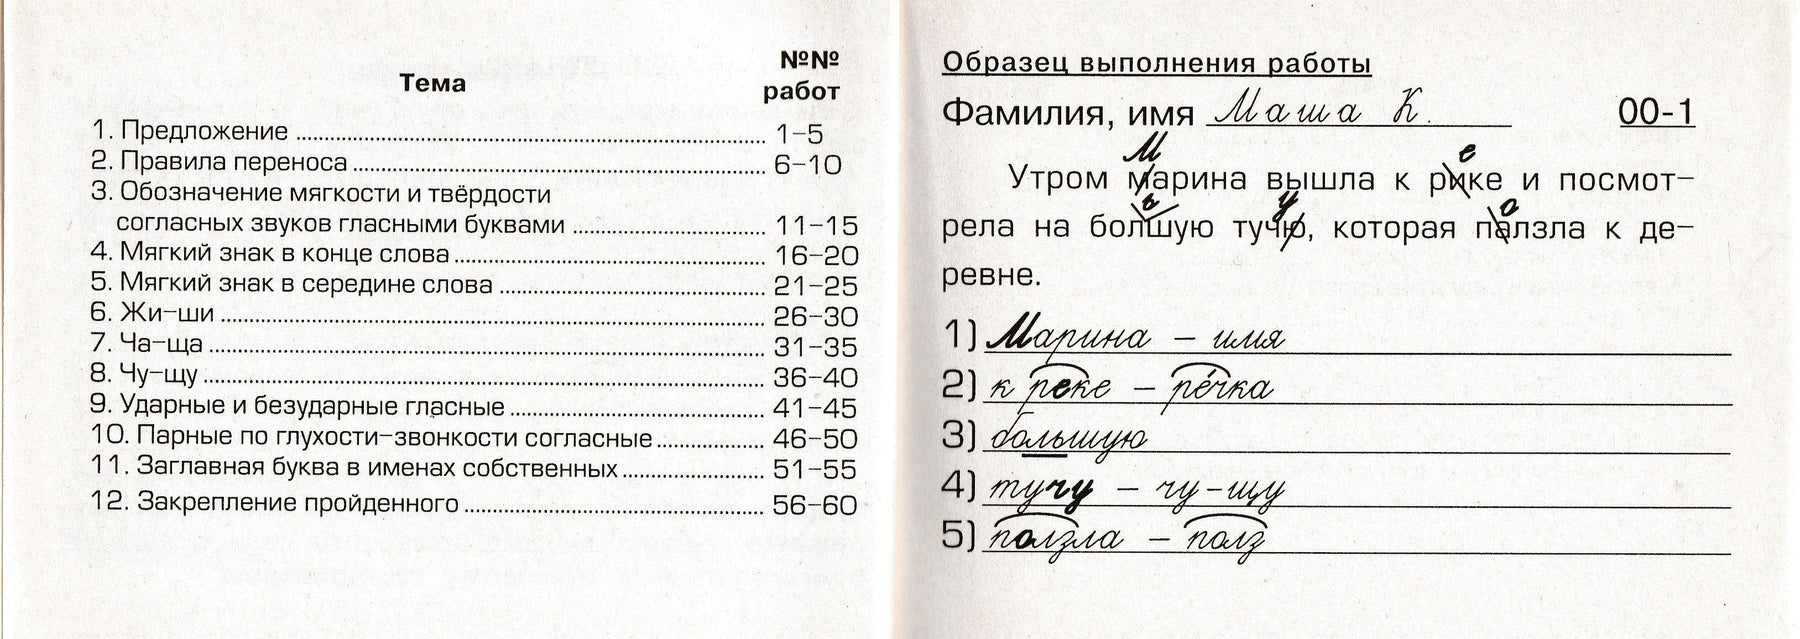 Тема
№№
работ
1. Предложение ........ 1–5
2. Правила переноса ........ 6–10
3. Обозначение мягкости и твёрдости
согласных звуков гласными буквами ........ 11–15
4. Мягкий знак в конце слова ........ 16–20
5. Мягкий знак в середине слова ........ 21–25
6. Жи–ши ........ 26–30
7. Ча–ща ........ 31–35
8. Чу–щу ........ 36–40
9. Ударные и безударные гласные ........ 41–45
10. Парные по глухости–звонкости согласные ........ 46–50
11. Заглавная буква в именах собственных ........ 51–55
12. Закрепление пройденного ........ 56–60
Образец выполнения работы
Фамилия, имя Маша К. 00-1
М е
Утром марина вышла к рике и посмот–
ь у о
рела на болшую тучю, которая палзла к де–
ревне.
1) Марина – имя
2) к реке – ре́чка
3) большую
4) тучу – чу-щу
5) ползла – полз